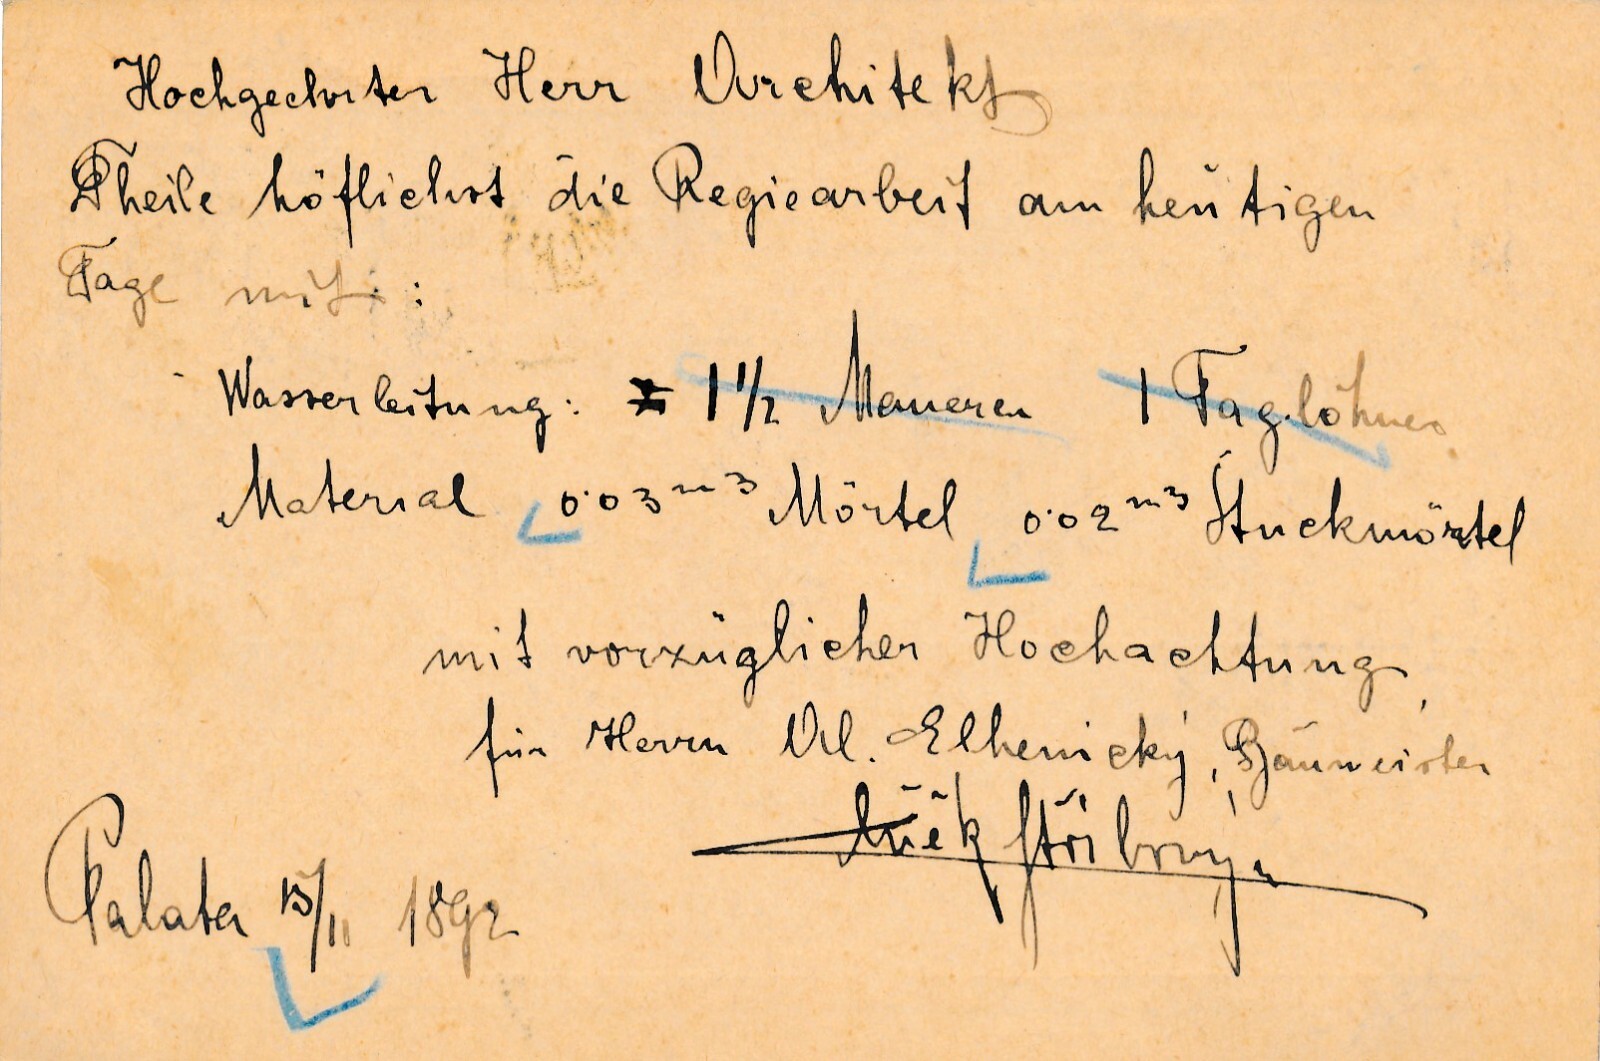 Hochgeehrter Herr Architekt
Theile höflichst die Regiearbeit am heutigen
Tage mit:
Wasserleitung: 1 1/2 Maurer 1 Taglöhner
Material 0·03 m3 Mörtel 0·02 m3 Stuckmörtel
mit vorzüglicher Hochachtung
für Herrn Al. Elhenický, Baumeister
Stříbrný
Palata 15/11 1892